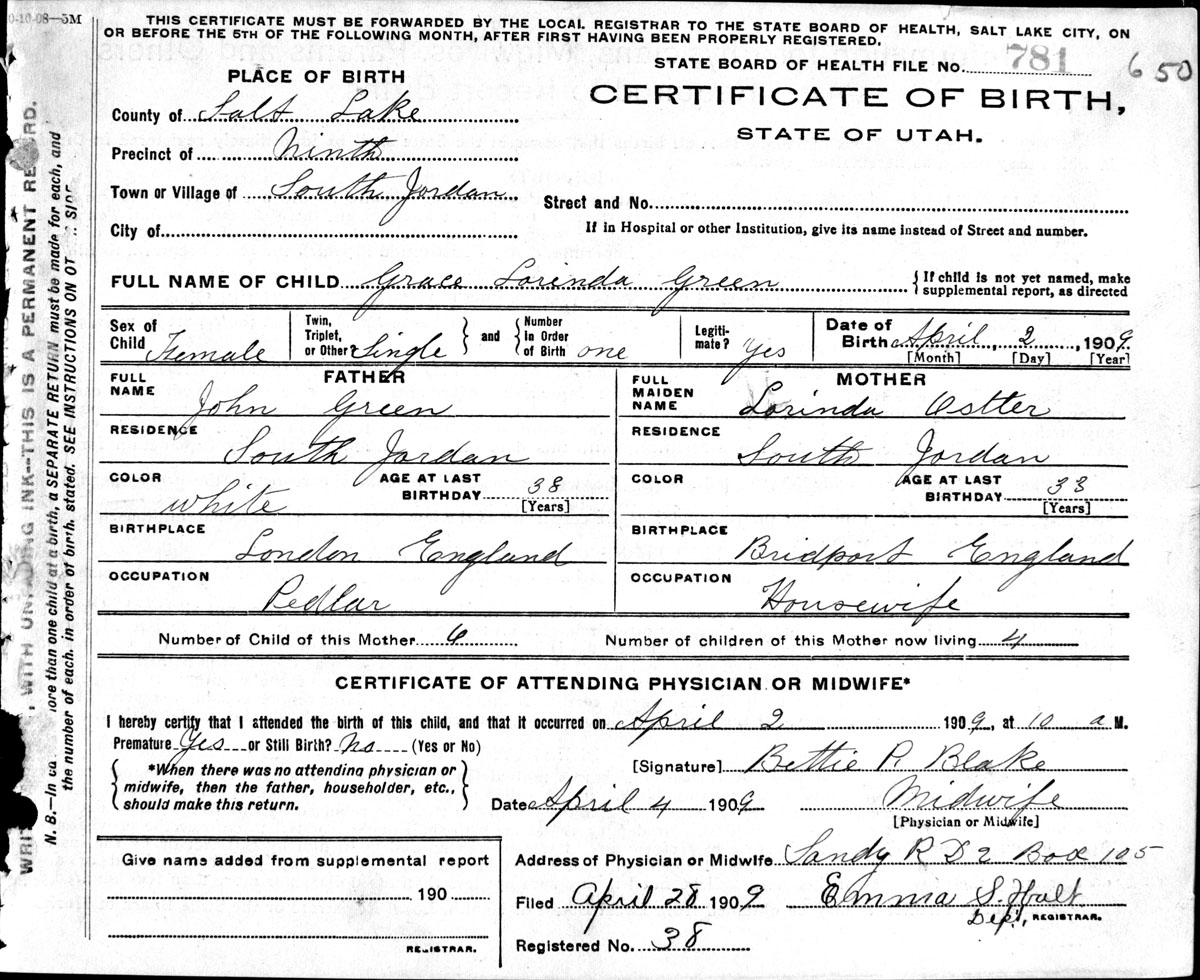 0-10-08—5M
THIS CERTIFICATE MUST BE FORWARDED BY THE LOCAL REGISTRAR TO THE STATE BOARD OF HEALTH, SALT LAKE CITY, ON
OR BEFORE THE 5TH OF THE FOLLOWING MONTH, AFTER FIRST HAVING BEEN PROPERLY REGISTERED.
STATE BOARD OF HEALTH FILE No. 781
650
PLACE OF BIRTH
CERTIFICATE OF BIRTH,
STATE OF UTAH.
County of Salt Lake
Precinct of Ninth
Town or Village of South Jordan
Street and No.
City of
If in Hospital or other Institution, give its name instead of Street and number.
FULL NAME OF CHILD Grace Lorinda Green
{If child is not yet named, make
supplemental report, as directed
Sex of Child Female
Twin, Triplet, or Other? Single
and
Number in Order of Birth one
Legitimate? Yes
Date of Birth April 2, 1909.
[Month] [Day] [Year]
FATHER
FULL NAME John Green
RESIDENCE South Jordan
COLOR white
AGE AT LAST BIRTHDAY 38
[Years]
BIRTHPLACE London England
OCCUPATION Pedlar
MOTHER
FULL MAIDEN NAME Lorinda Ostter
RESIDENCE South Jordan
COLOR
AGE AT LAST BIRTHDAY 33
[Years]
BIRTHPLACE Bridport England
OCCUPATION Housewife
Number of Child of this Mother 6
Number of children of this Mother now living 4
CERTIFICATE OF ATTENDING PHYSICIAN OR MIDWIFE*
I hereby certify that I attended the birth of this child, and that it occurred on April 2 1909, at 10 a M.
Premature Yes or Still Birth? No (Yes or No)
*When there was no attending physician or
midwife, then the father, householder, etc.,
should make this return.
[Signature] Bettie R Blake
Date April 4 1909
Midwife
[Physician or Midwife]
Give name added from supplemental report
190
REGISTRAR.
Address of Physician or Midwife Sandy R D 2 Box 105
Filed April 28 1909
Emma S. Holt
Dept., REGISTRAR.
Registered No. 38
WITH UNFADING INK—THIS IS A PERMANENT RECORD.
N. B.—In more than one child at a birth, a SEPARATE RETURN must be made for each, and
the number of each, in order of birth, stated. SEE INSTRUCTIONS ON SIDE